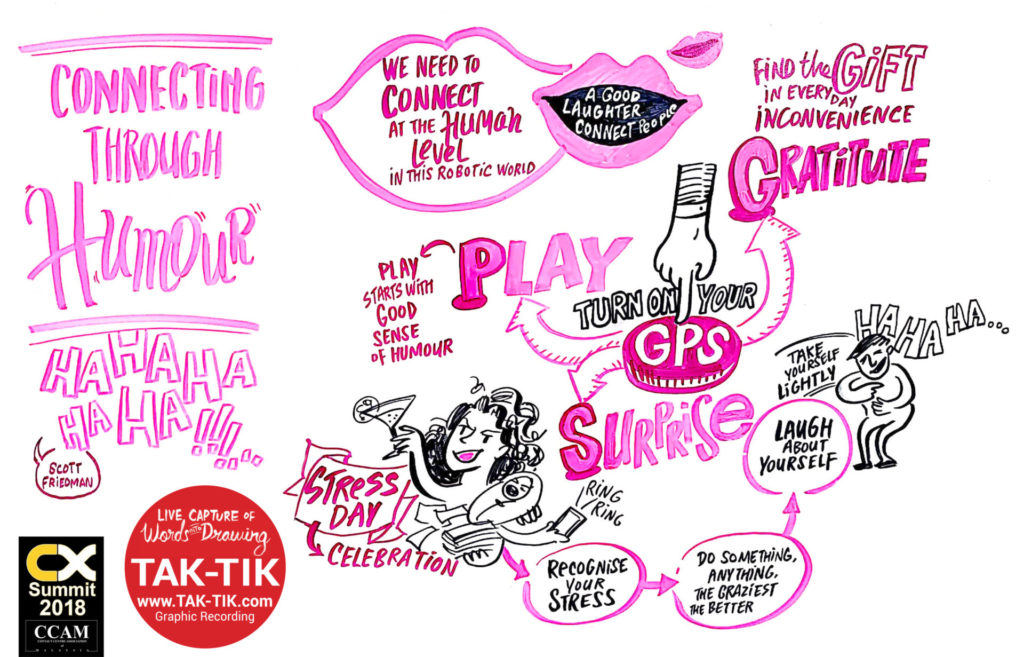 CONNECTING
THROUGH
"HUMOUR"
HAHAHA
HAHA!!!...
SCOTT
FRIEDMAN
WE NEED TO
CONNECT
AT THE HUMAN
LEVEL
IN THIS ROBOTIC WORLD
A GOOD
LAUGHTER
CONNECT PEOPLE
FIND the GIFT
IN EVERYDAY
INCONVENIENCE
GRATITUTE
PLAY
PLAY
STARTS WITH
GOOD
SENSE
OF HUMOUR
TURN ON YOUR
GPS
SURPRISE
HAHAHA...
TAKE
YOURSELF
LIGHTLY
LAUGH
ABOUT
YOURSELF
STRESS
DAY
CELEBRATION
RING
RING
RECOGNISE
YOUR
STRESS
DO SOMETHING,
ANYTHING,
THE GRAZIEST
THE BETTER
CX
Summit
2018
CCAM
CONTACT CENTRE ASSOCIATION
of
MALAYSIA
LIVE CAPTURE OF
Words INTO Drawing
TAK-TIK
www.TAK-TIK.com
Graphic Recording